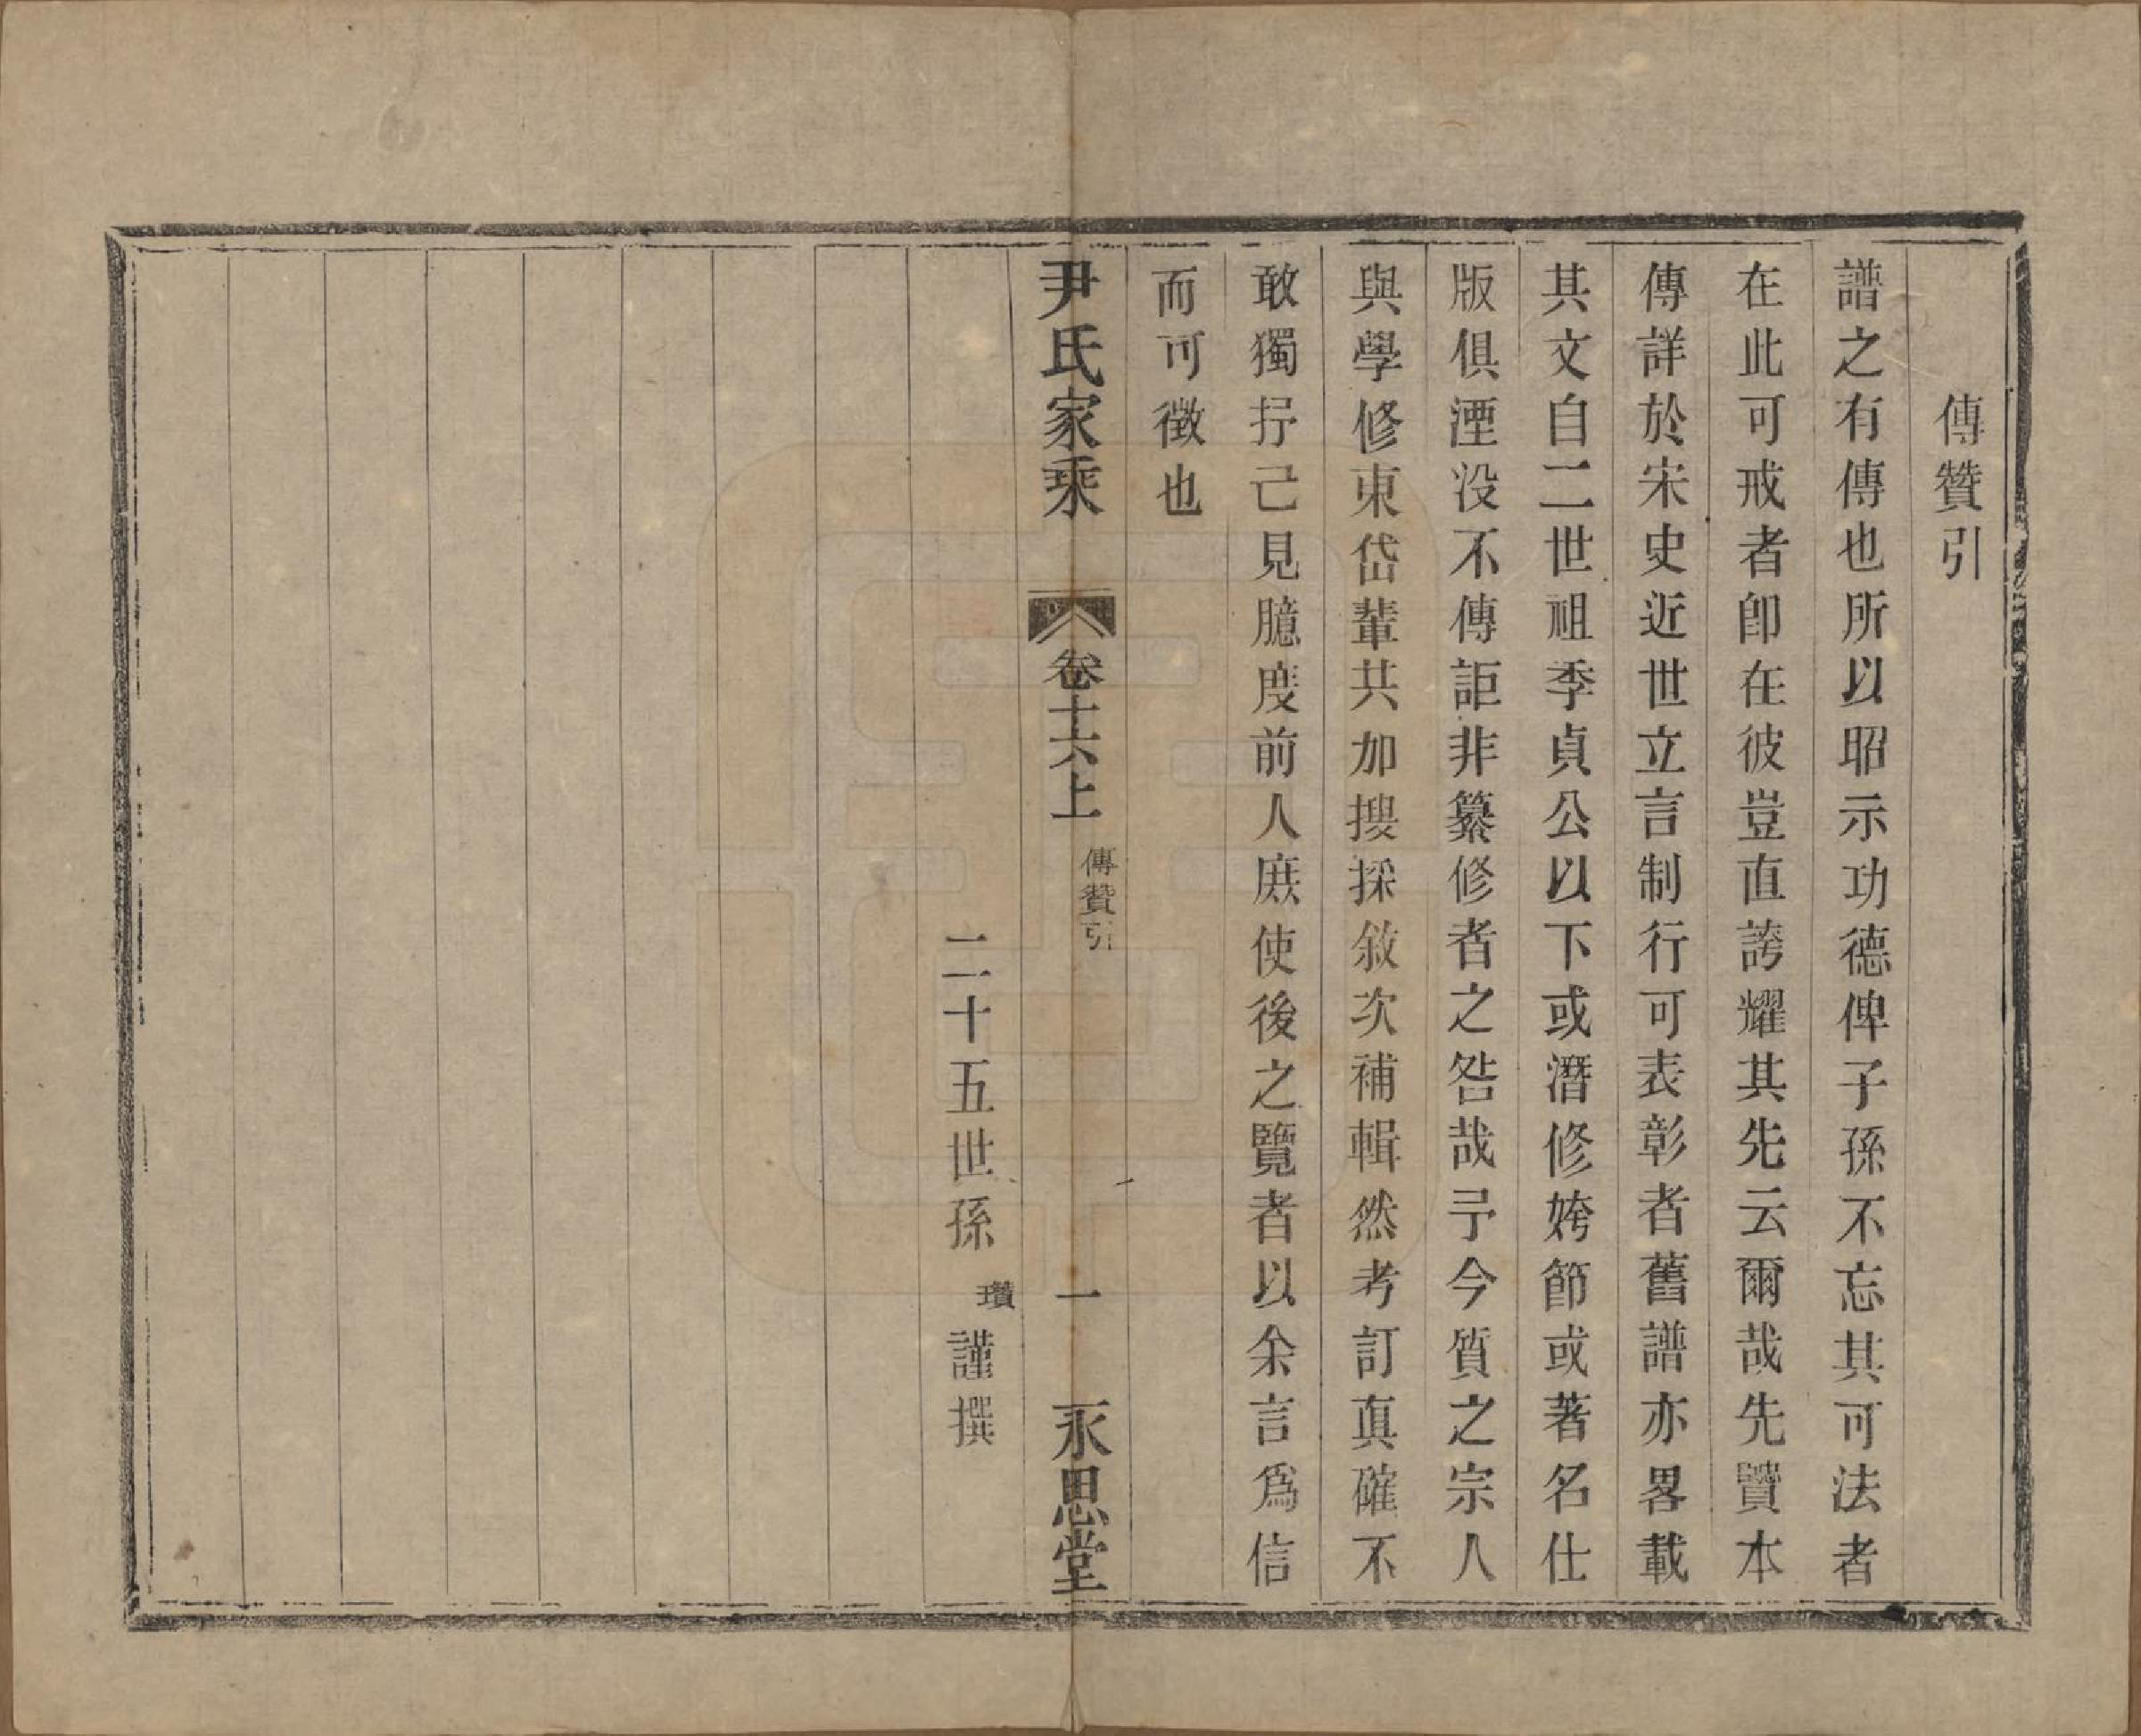 傳贊引
譜之有傳也所以昭示功德俾子孫不忘其可法者
在此可戒者卽在彼豈直誇耀其先云爾哉先賢本
傳詳於宋史近世立言制行可表彰者舊譜亦畧載
其文自二世祖季貞公以下或潛修姱節或著名仕
版俱湮没不傳詎非纂修者之咎哉予今質之宗人
與學修東岱輩共加搜採敘次補輯然考訂真確不
敢獨抒己見臆度前人庶使後之覽者以余言爲信
而可徵也
尹氏家乘 卷十六上 傳贊引 一 永思堂
二十五世孫 瓚 謹撰